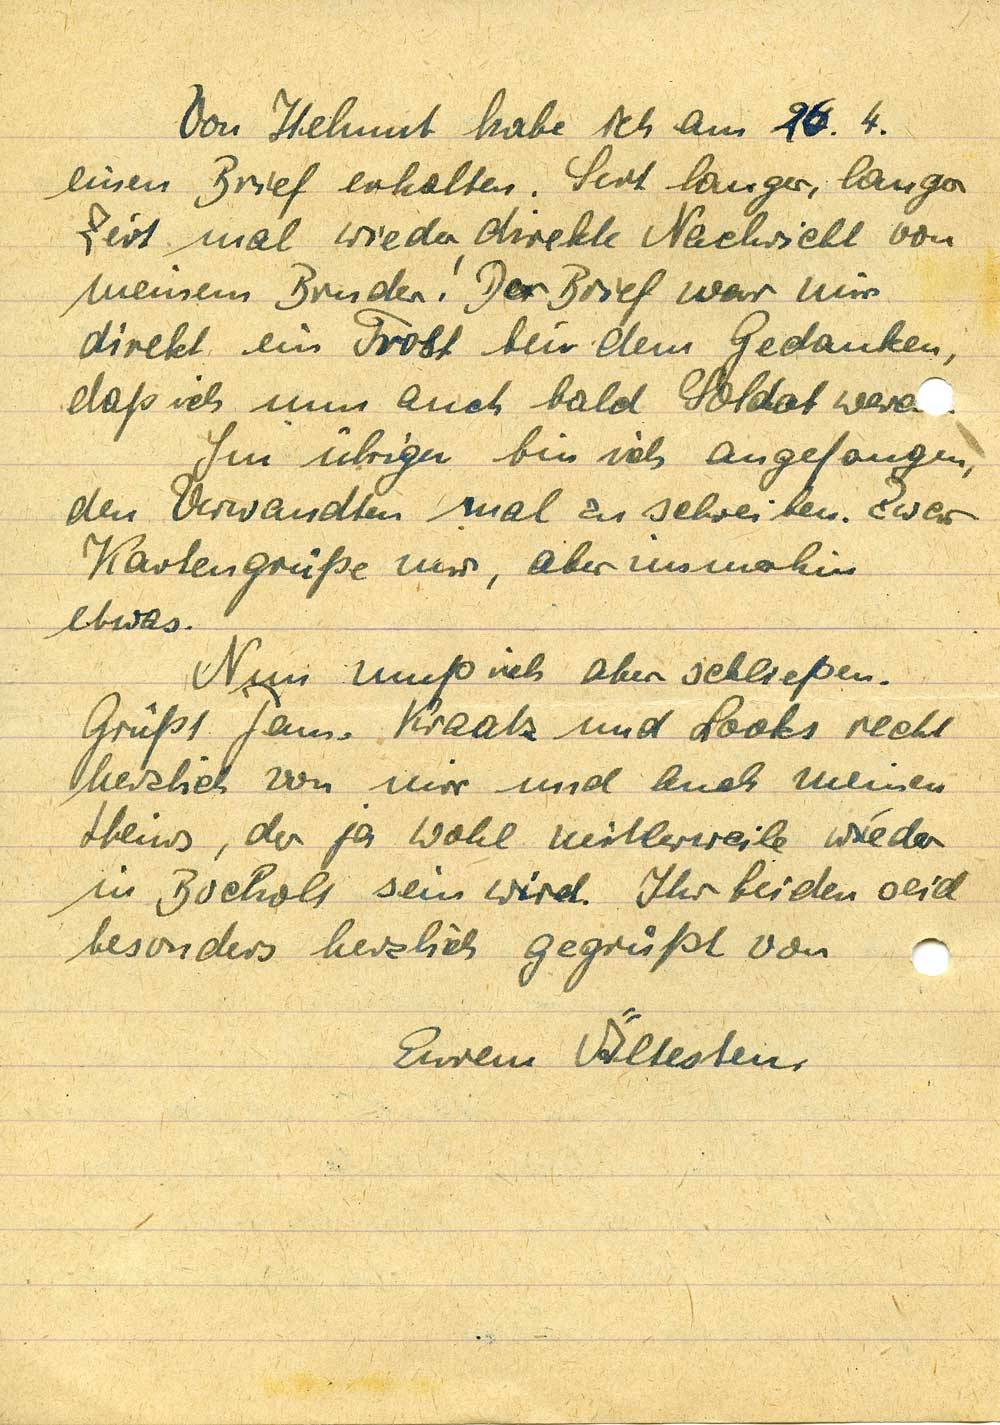 Von Helmut habe ich am 26. 4.
einen Brief erhalten. Seit langer, langer
Zeit mal wieder direkte Nachricht von
meinem Bruder! Der Brief war mir
direkt ein Trost bei dem Gedanken,
daß ich nun auch bald Soldat werde.
Im übrigen bin ich angefangen,
den Verwandten mal zu schreiben. Zwar
Kartengrüße nur, aber immerhin
etwas.
Nun muß ich aber schließen.
Grüßt Fam. Kraatz und Looks recht
herzlich von mir und auch meinen
Heins, der ja wohl mitlerweile wieder
in Bocholt sein wird. Ihr beiden seid
besonders herzlich gegrüßt von
Eurem Ältesten.